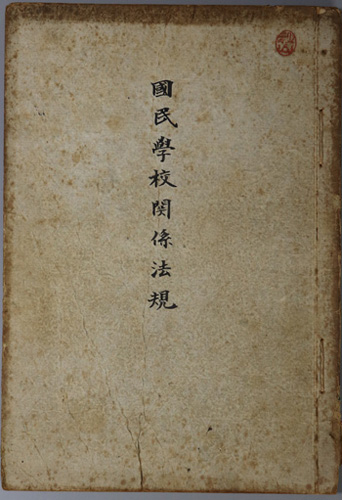 國民學校関係法規